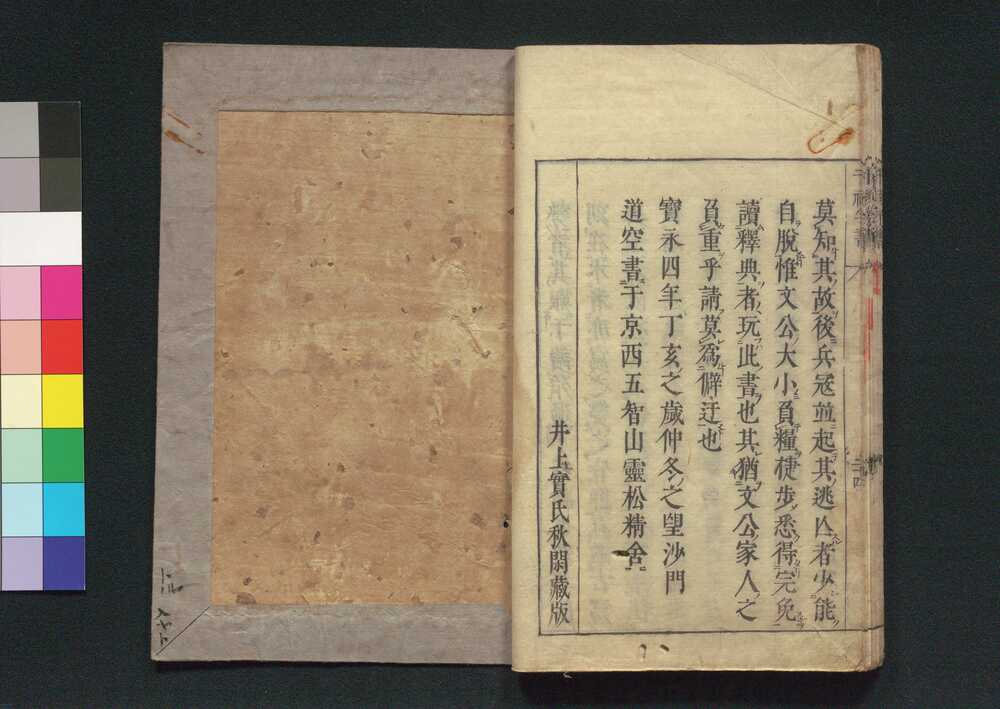 莫知其故後兵寇並起其逃亾者少能
自脫惟文公大小負糧揵步悉得完免
讀釋典者玩此書也其猶文公家人之
負重乎請莫爲僻迂也
寶永四年丁亥之歲仲冬之望沙門
道空書于京西五智山靈松精舍
井上實氏秋閑藏版